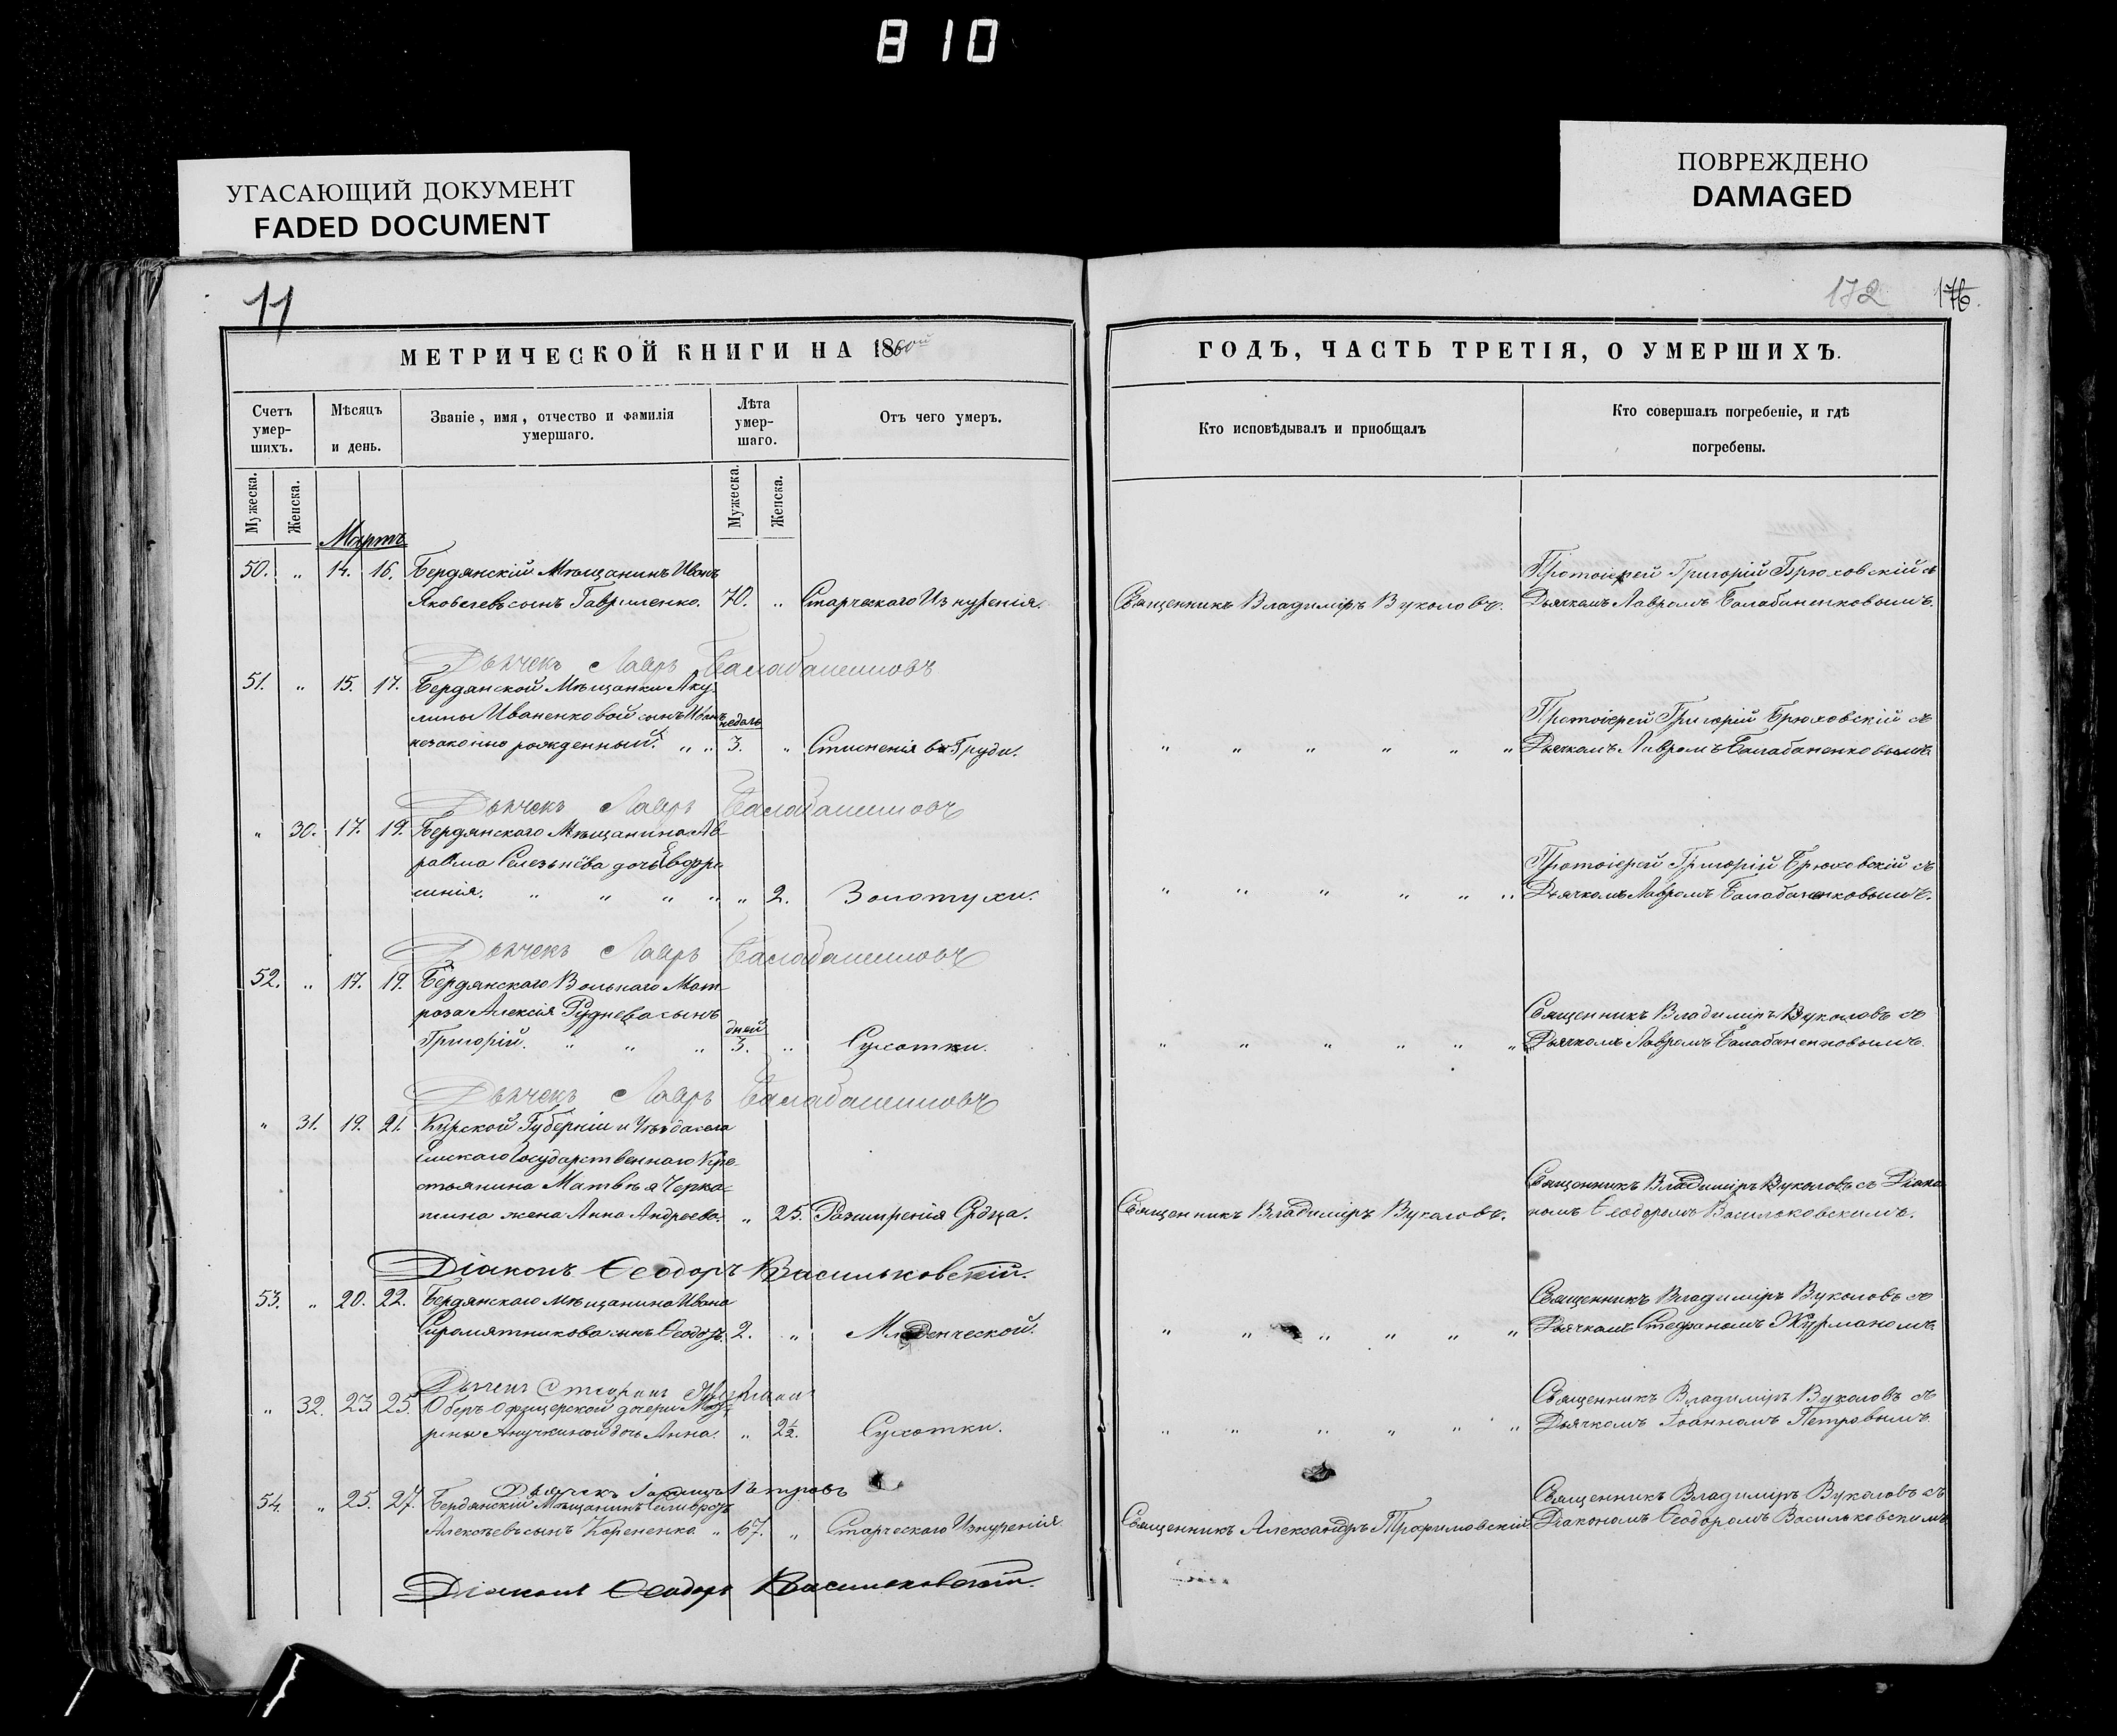 810
УГАСАЮЩИЙ ДОКУМЕНТ
FADED DOCUMENT
ПОВРЕЖДЕНО
DAMAGED
11
172 176.
МЕТРИЧЕСКОЙ КНИГИ НА 1860ой
ГОДЪ, ЧАСТЬ ТРЕТІЯ, О УМЕРШИХЪ.
Счетъ умер-шихъ.
Мѣсяцъ и день.
Званіе, имя, отчество и фамилія умершаго.
Лѣта умер-шаго.
Отъ чего умеръ.
Кто исповѣдывалъ и пріобщалъ
Кто совершалъ погребеніе, и гдѣ погребены.
Мужеска. Женска.
Мужеска. Женска.
Мартъ
50. „ 14. 16. Бердянскій Мѣщанинъ Иванъ
Яковлевъ сынъ Гавриленко. 70. „ Старческаго Изнуренія. Священникъ Владиміръ Вуколовъ.
Протоіерей Григорій Брюховскій съ
Дьячкомъ Лавромъ Балабаненковымъ.
Дьячекъ Лавръ Балабаненковъ
51. „ 15. 17. Бердянской Мѣщанки Аку-
лины Иваненковой сынъ Иванъ недѣль
незаконно рожденный. „ „ 3. „ Стисненія въ Груди. „ „ „ „ „ „
Протоіерей Григорій Брюховскій съ
Дьячкомъ Лавромъ Балабаненковымъ.
Дьячекъ Лавръ Балабаненковъ
„ 30. 17. 19. Бердянскаго Мѣщанина Ав-
раама Селезнёва дочь Евфро-
синія. „ „ „ „ „ 2. Золотухи. „ „ „ „ „ „
Протоіерей Григорій Брюховскій съ
Дьячкомъ Лавромъ Балабаненковымъ.
Дьячекъ Лавръ Балабаненковъ
52. „ 17. 19. Бердянскаго Вольнаго Мат-
роза Алексія Руднева сынъ дней
Григорій. „ „ „ 3. „ Сухотки. „ „ „ „ „ „
Священникъ Владиміръ Вуколовъ съ
Дьячкомъ Лавромъ Балабаненковымъ.
Дьячекъ Лавръ Балабаненковъ
„ 31. 19. 21. Курской Губерніи и Уѣзда села
Государственнаго Кре-
стьянина Матвѣя Черка-
шина жена Анна Андреева. „ 25. Разширенія Сердца. Священникъ Владиміръ Вуколовъ.
Священникъ Владиміръ Вуколовъ съ Діако-
номъ Ѳеодоромъ Васильковскимъ.
Діаконъ Ѳеодоръ Васильковскій.
53. „ 20. 22. Бердянскаго Мѣщанина Ивана
Сыромятникова сынъ Ѳеодоръ. 2. „ Младенческой. „ „ „ „ „ „
Священникъ Владиміръ Вуколовъ съ
Дьячкомъ Стефаномъ Журманомъ.
Дьячекъ Стефанъ Журманъ
„ 32. 23. 25. Оберъ Офицерской дочери
Анучкиной дочь Анна. „ 2½. Сухотки. „ „ „ „ „ „
Священникъ Владиміръ Вуколовъ съ
Дьячкомъ Іоанномъ Петровымъ.
Дьячекъ Іоаннъ Петровъ
54. „ 25. 27. Бердянскій Мѣщанинъ
Алексѣевъ сынъ Корененко. „ 67. „ Старческаго Изнуренія. Священникъ Александръ Трофимовскій.
Священникъ Владиміръ Вуколовъ съ
Діакономъ Ѳеодоромъ Васильковскимъ.
Діаконъ Ѳеодоръ Васильковскій.